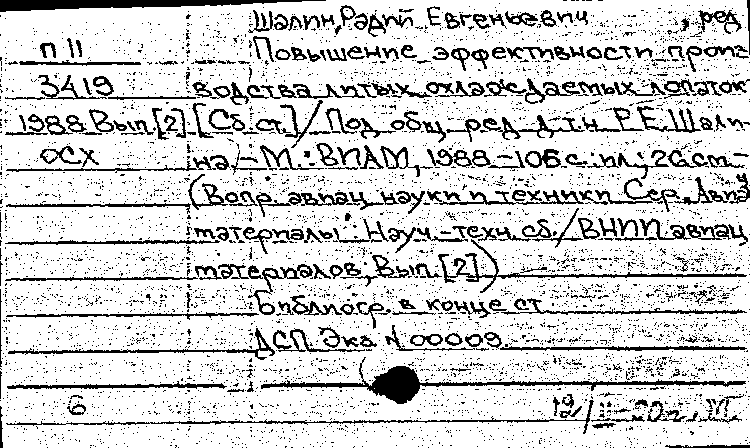 Шалин, Радий Евгеньевич, ред
П 11 Повышение эффективности произ
3419 водства литых охлаждаемых лопаток
1988 Вып.[2] [Сб. ст.] / Под общ. ред. д.т.н. Р.Е. Шали-
ОСХ на) – М.: ВИАМ, 1988 – 106 с.: ил.; 26 см –
(Вопр. авиац. науки и техники Сер. Авиа
материалы: Науч.-техн. сб. / ВНИИ авиац
материалов; Вып. [2])
Библиогр. в конце ст
ДСП. Экз N 00009.
6 12/II-20 г.